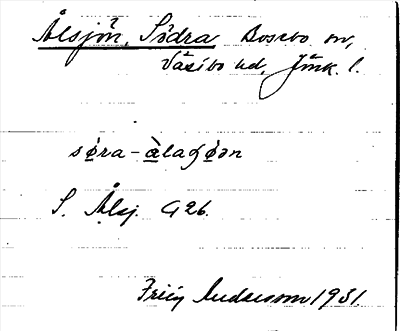 Ålsjön, Södra Bosebo sn,
Västbo hd, Jönk. l.
södra-àlaʃøən
S. Ålsj. G 26.
Andersson 1931.